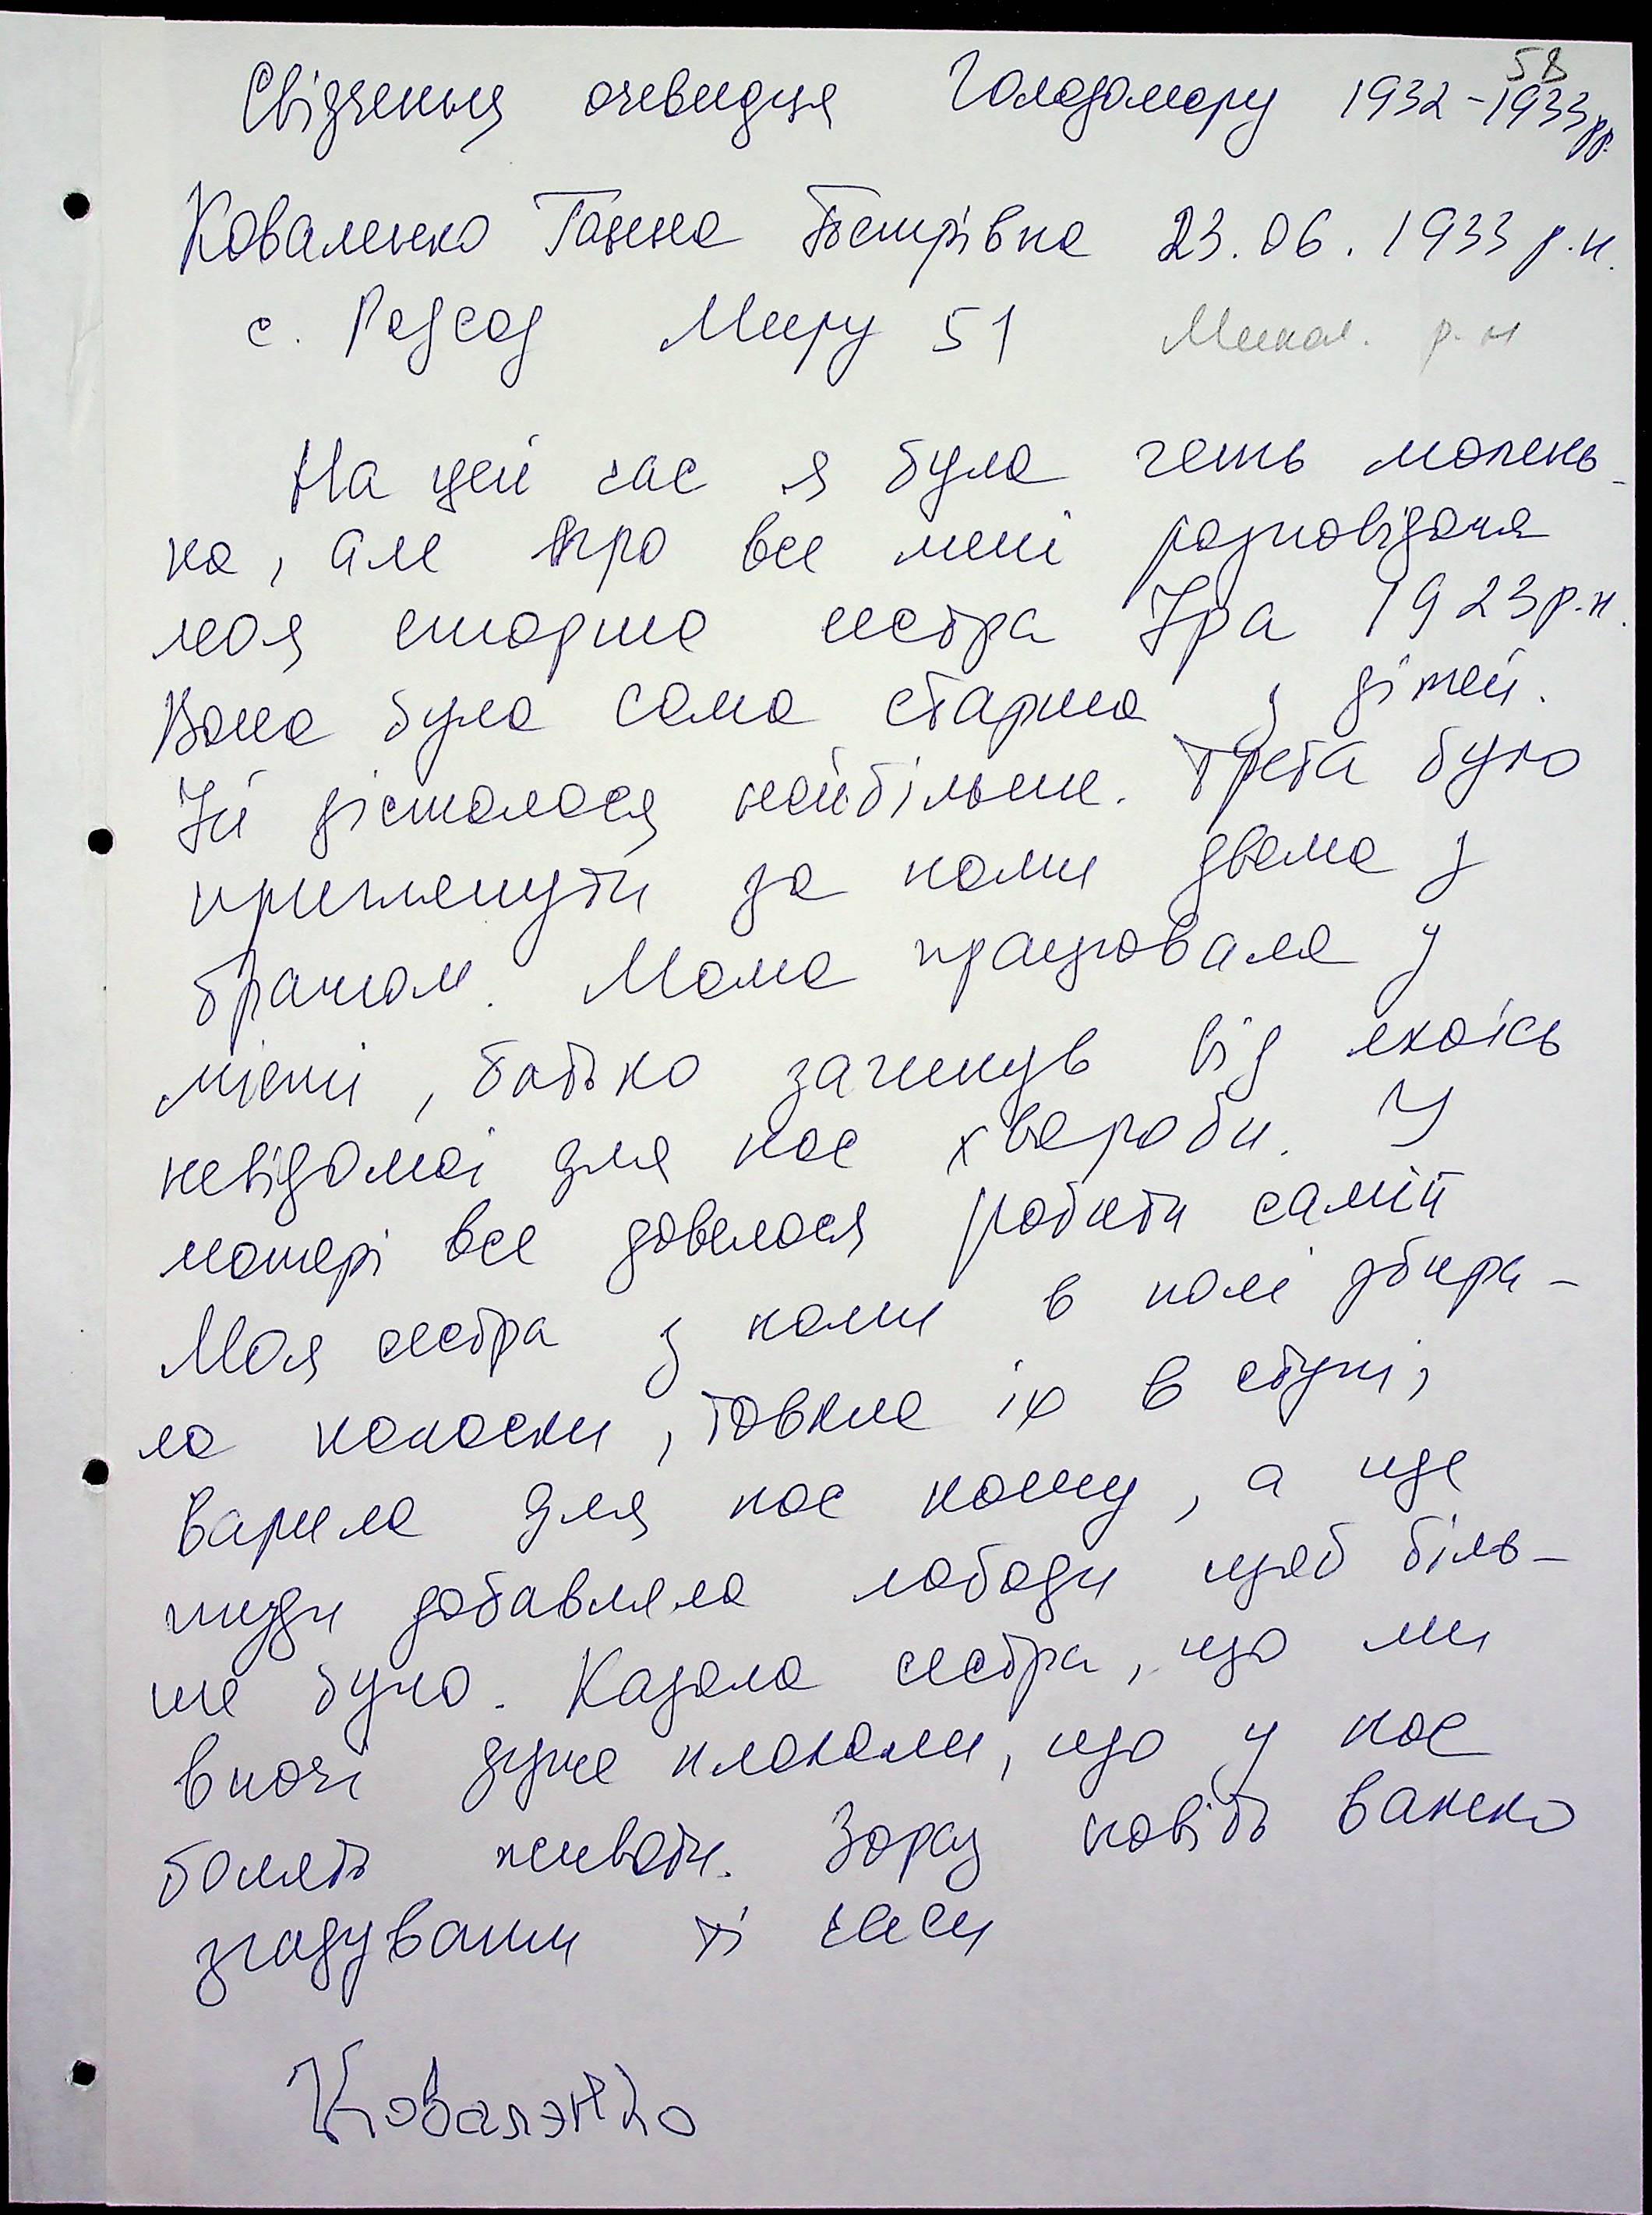 58
Свідчення очевидця Голодомору 1932-1933рр.
Коваленко Ганна Петрівна 23.06.1933 р.н.
с. Радсад Миру 51 Микол. р-н
На цей час я була геть малень-
ка, але про все мені розповідала
моя старша сестра Іра 1923р.н.
Вона була сама старша з дітей.
Їй дісталося найбільше. Треба було
приглянути за нами двома з
братом. Мама працювала у
місті, батько загинув від якоїсь
невідомої для нас хвороби. У
матері все довелося робити самій
Моя сестра з нами в полі збира-
ла колоски, товкла їх в ступі,
варила для нас кашу, а ще
туди добавляла лободи щоб біль-
ше було. Казала сестра, що ми
вночі дуже плакали, що у нас
болять животи. Зараз навіть важко
згадувати ті часи
Ковалэнко